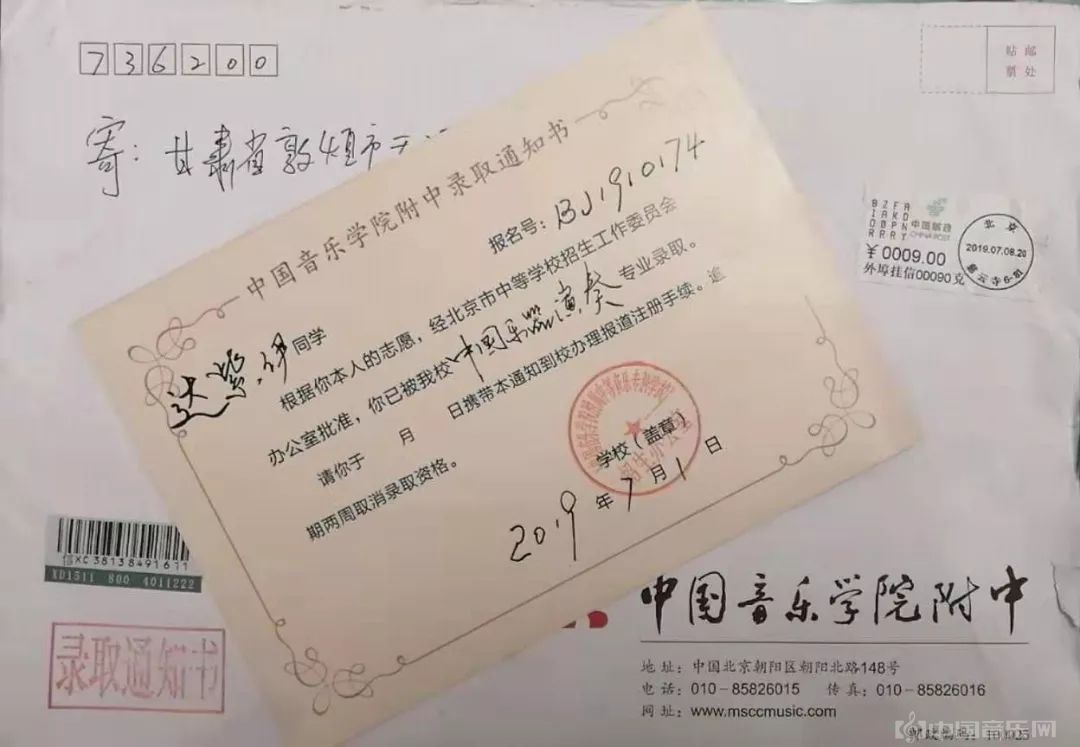 736200
贴 邮
票 处
寄：甘肃省敦煌市
中国音乐学院附中录取通知书
报名号：BJ1910174
同学
根据你本人的志愿，经北京市中等学校招生工作委员会
办公室批准，你已被我校中国乐器演奏专业录取。
请你于 月 日携带本通知到校办理报道注册手续。逾
期两周取消录取资格。
学校（盖章）
招生办公室
2019年7月1日
中国邮政
CHINA POST
¥0009.00
外埠挂信00090克
北京
2019.07.08.20
信XC38138491611
XD1511 800 4011222
录取通知书
中国音乐学院附中
地址：中国北京朝阳区朝阳北路148号
电话：010-85826015 传真：010-85826016
网址：www.msccmusic.com
中国音乐网